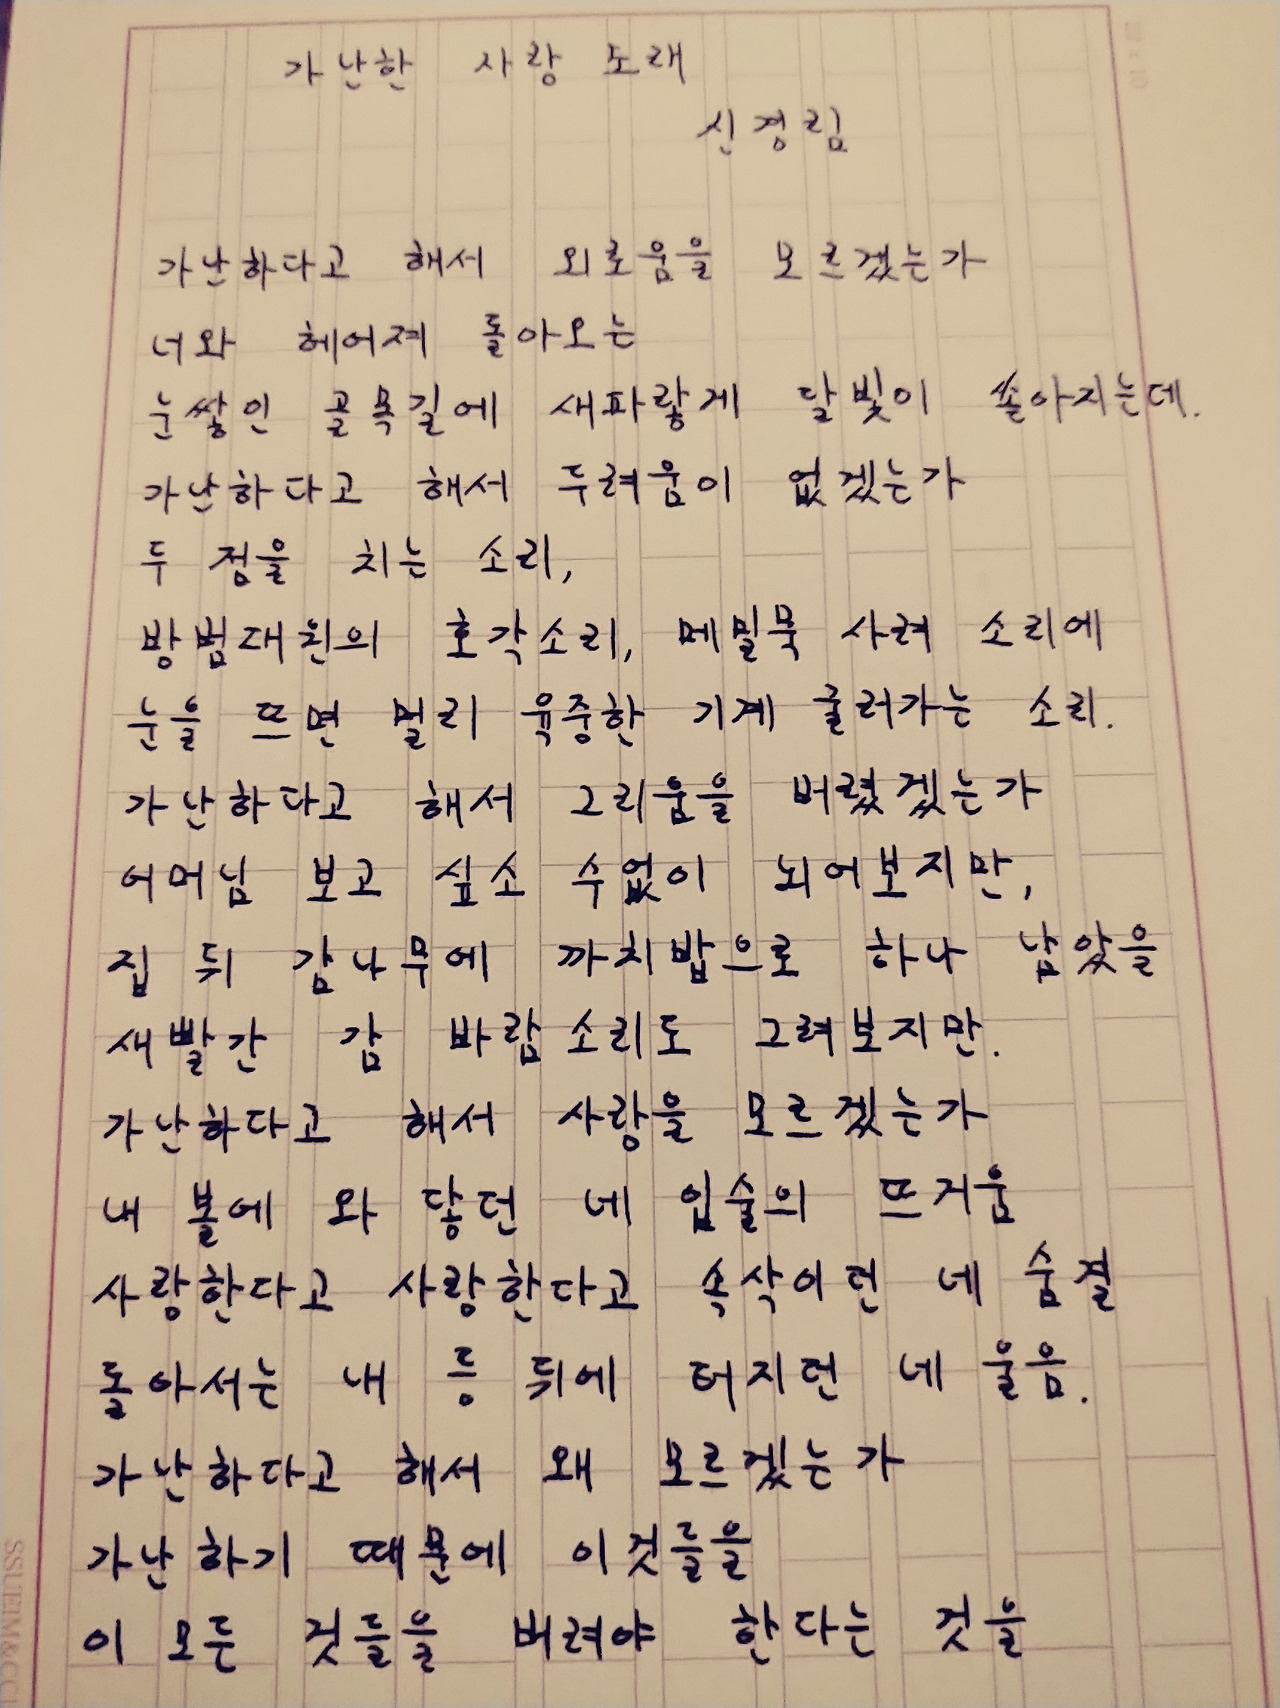 가난한 사랑 노래
신경림
가난하다고 해서 외로움을 모르겠는가
너와 헤어져 돌아오는
눈쌓인 골목길에 새파랗게 달빛이 쏟아지는데.
가난하다고 해서 두려움이 없겠는가
두 점을 치는 소리,
방범대원의 호각소리, 메밀묵 사려 소리에
눈을 뜨면 멀리 육중한 기계 굴러가는 소리.
가난하다고 해서 그리움을 버렸겠는가
어머님 보고 싶소 수없이 뇌어보지만,
집 뒤 감나무에 까치밥으로 하나 남았을
새빨간 감 바람소리도 그려보지만.
가난하다고 해서 사랑을 모르겠는가
내 볼에 와 닿던 네 입술의 뜨거움
사랑한다고 사랑한다고 속삭이던 네 숨결
돌아서는 내 등 뒤에 터지던 네 울음.
가난하다고 해서 왜 모르겠는가
가난하기 때문에 이것들을
이 모든 것들을 버려야 한다는 것을